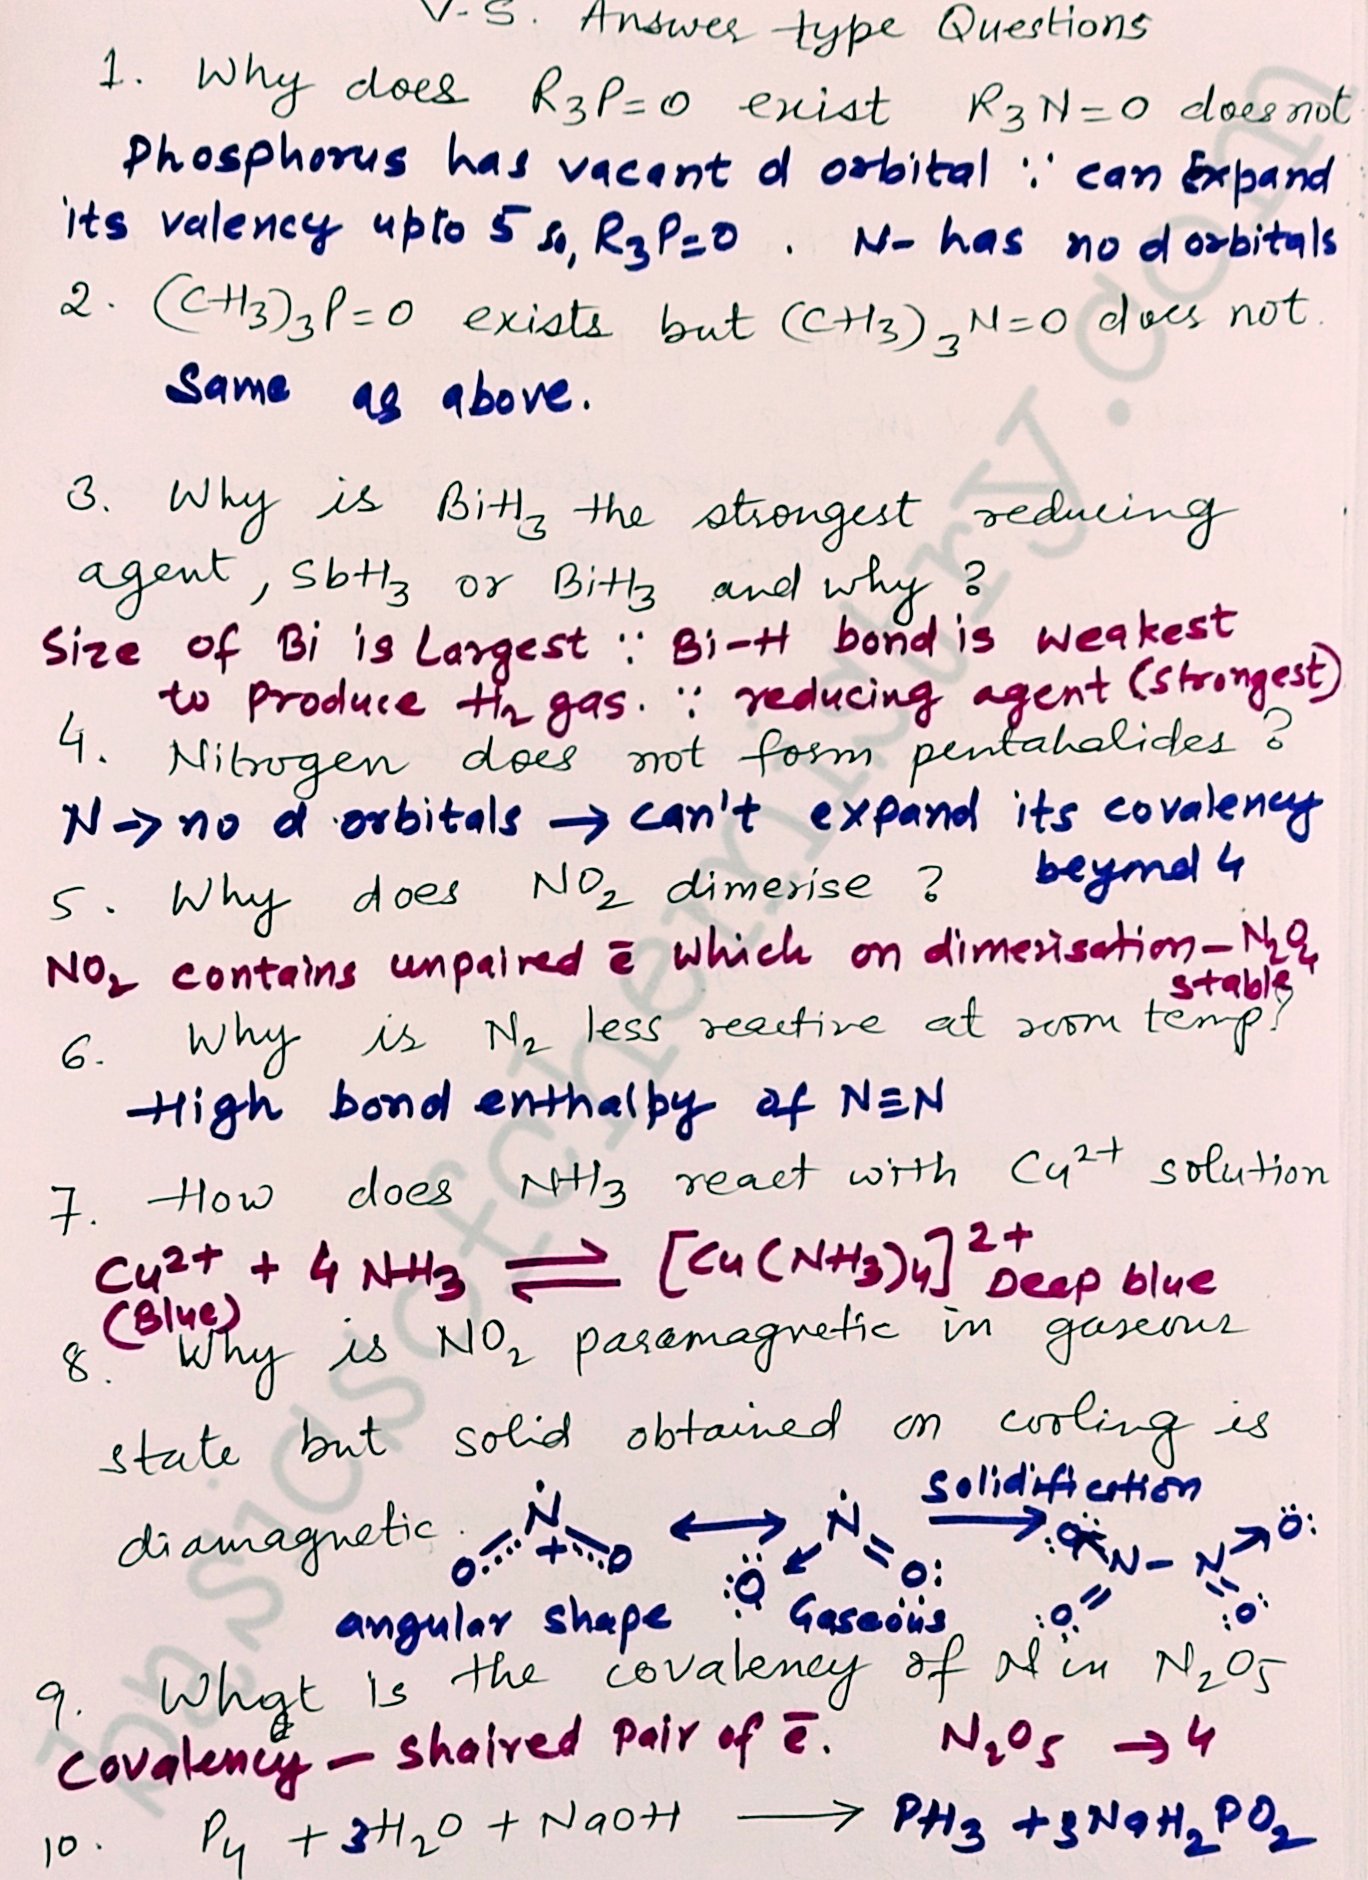 V-S. Answer type Questions
1. Why does R₃P=O exist R₃N=O does not
Phosphorus has vacant d orbital ∵ can Expand
its valency upto 5 so, R₃P=O . N- has no d orbitals
2. (CH₃)₃P=O exists but (CH₃)₃N=O does not.
Same as above.
3. Why is BiH₃ the strongest reducing
agent, SbH₃ or BiH₃ and why ?
Size of Bi is Largest ∵ Bi-H bond is weakest
to produce H₂ gas. ∵ reducing agent (strongest)
4. Nitrogen does not form pentahalides ?
N → no d orbitals → can't expand its covalency
beyond 4
5. Why does NO₂ dimerise ?
NO₂ contains unpaired ē which on dimerisation – N₂O₄
stable
6. Why is N₂ less reactive at room temp?
High bond enthalpy of N≡N
7. How does NH₃ react with Cu²⁺ solution
Cu²⁺ + 4 NH₃ ⇌ [Cu(NH₃)₄]²⁺ Deep blue
(Blue)
8. Why is NO₂ paramagnetic in gaseous
state but solid obtained on cooling is
diamagnetic.
Solidification
N O O + ↔ N :O O: → :O N–N O: :O O:
angular shape Gaseous
9. What is the covalency of N in N₂O₅
Covalency – shaired pair of ē. N₂O₅ → 4
10. P₄ + 3H₂O + NaOH → PH₃ + 3NaH₂PO₂
basicsofchemistry.com